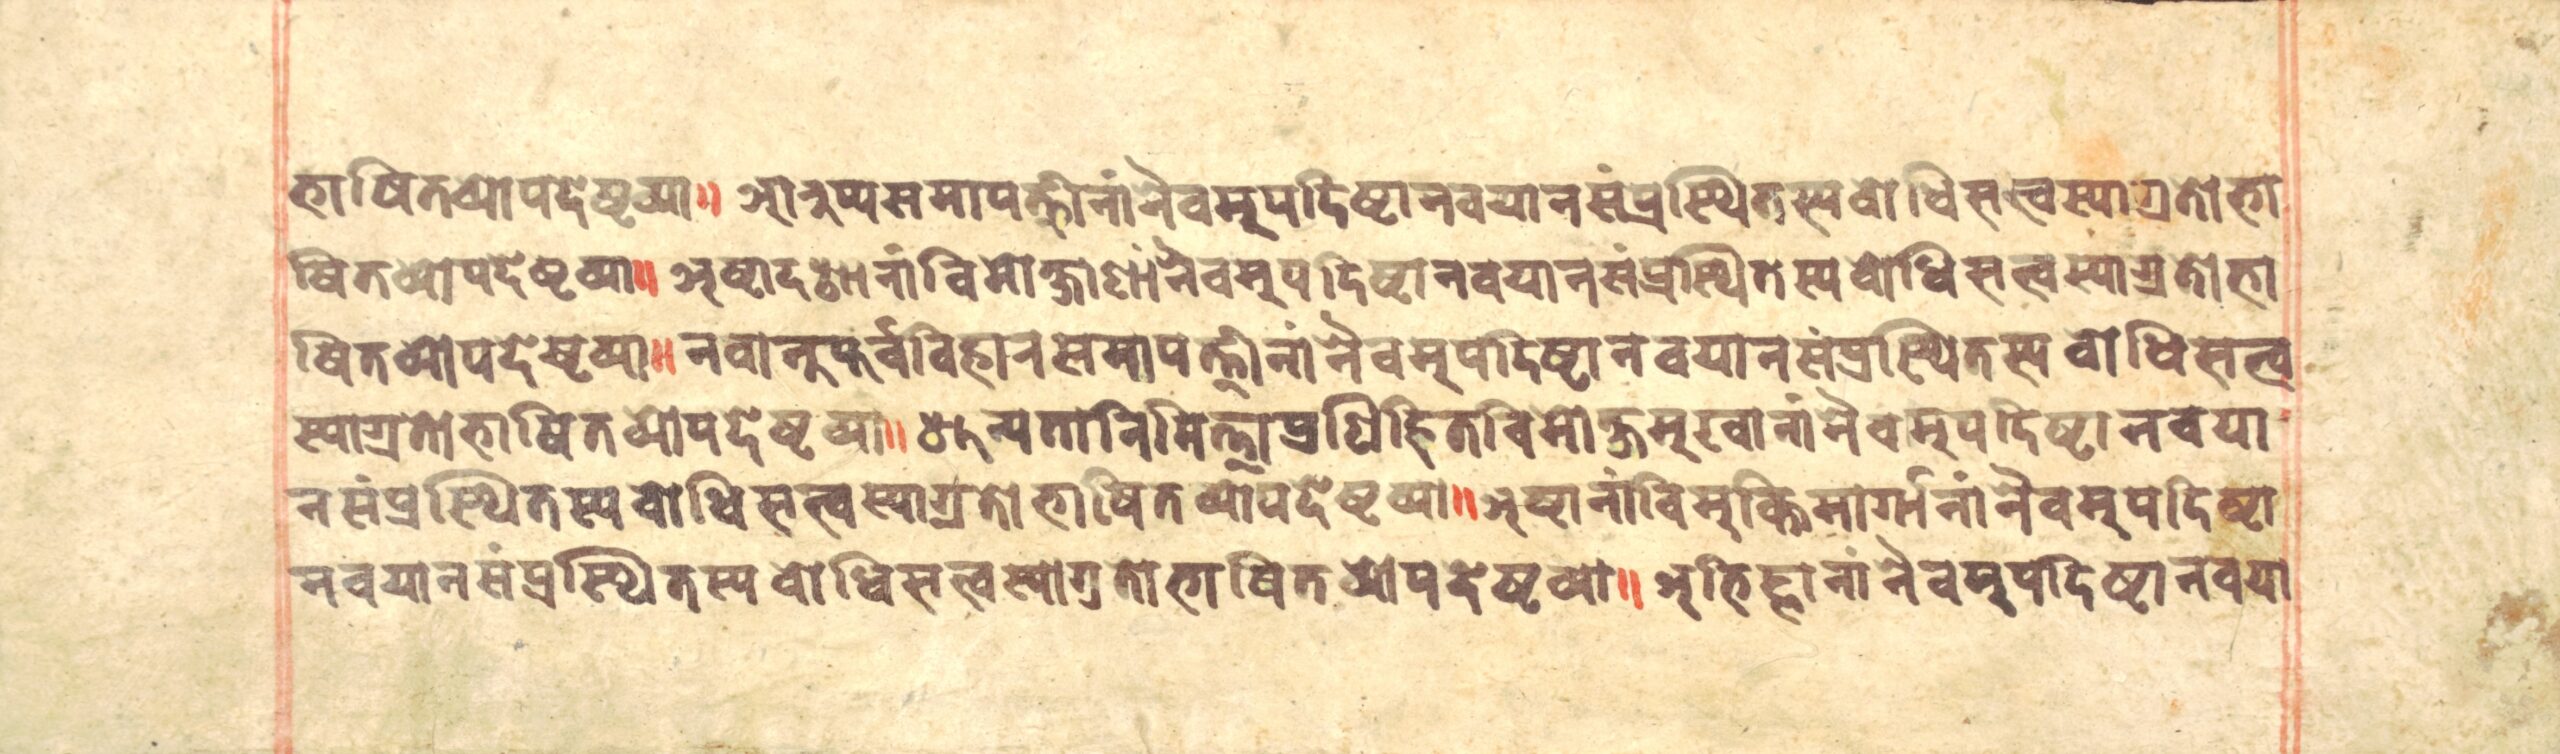 भाषितव्योपदेष्टव्या॥ आरुप्यसमापत्तीनांनैवमुपदिष्टानवयानसंप्रस्थितस्यबोधिसत्त्वस्याग्रतोभा
षितव्योपदेष्टव्या॥ अष्टादशानांविमोक्षाणांनैवमुपदिष्टानवयानसंप्रस्थितस्यबोधिसत्त्वस्याग्रतोभा
षितव्योपदेष्टव्या॥ नवानुपूर्वविहारसमापत्तीनांनैवमुपदिष्टानवयानसंप्रस्थितस्यबोधिसत्त्व
स्याग्रतोभाषितव्योपदेष्टव्या॥ शून्यतानिमित्ताप्रणिहितविमोक्षमुखानांनैवमुपदिष्टानवया
नसंप्रस्थितस्यबोधिसत्त्वस्याग्रतोभाषितव्योपदेष्टव्या॥ अष्टानांविमुक्तिमार्गानांनैवमुपदिष्टा
नवयानसंप्रस्थितस्यबोधिसत्त्वस्याग्रतोभाषितव्योपदेष्टव्या॥ अभिज्ञानांनैवमुपदिष्टानवया